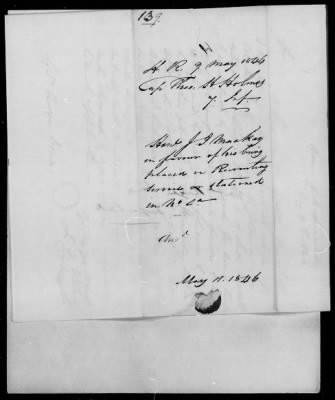 139
H. R. 9 May 1846
Cap Theo. H Holmes
7. Inf
Hon J. J. Mackay
in favour of his being
placed on Recruiting
service or stationed
in No Ca
Ansd
May 11. 1846